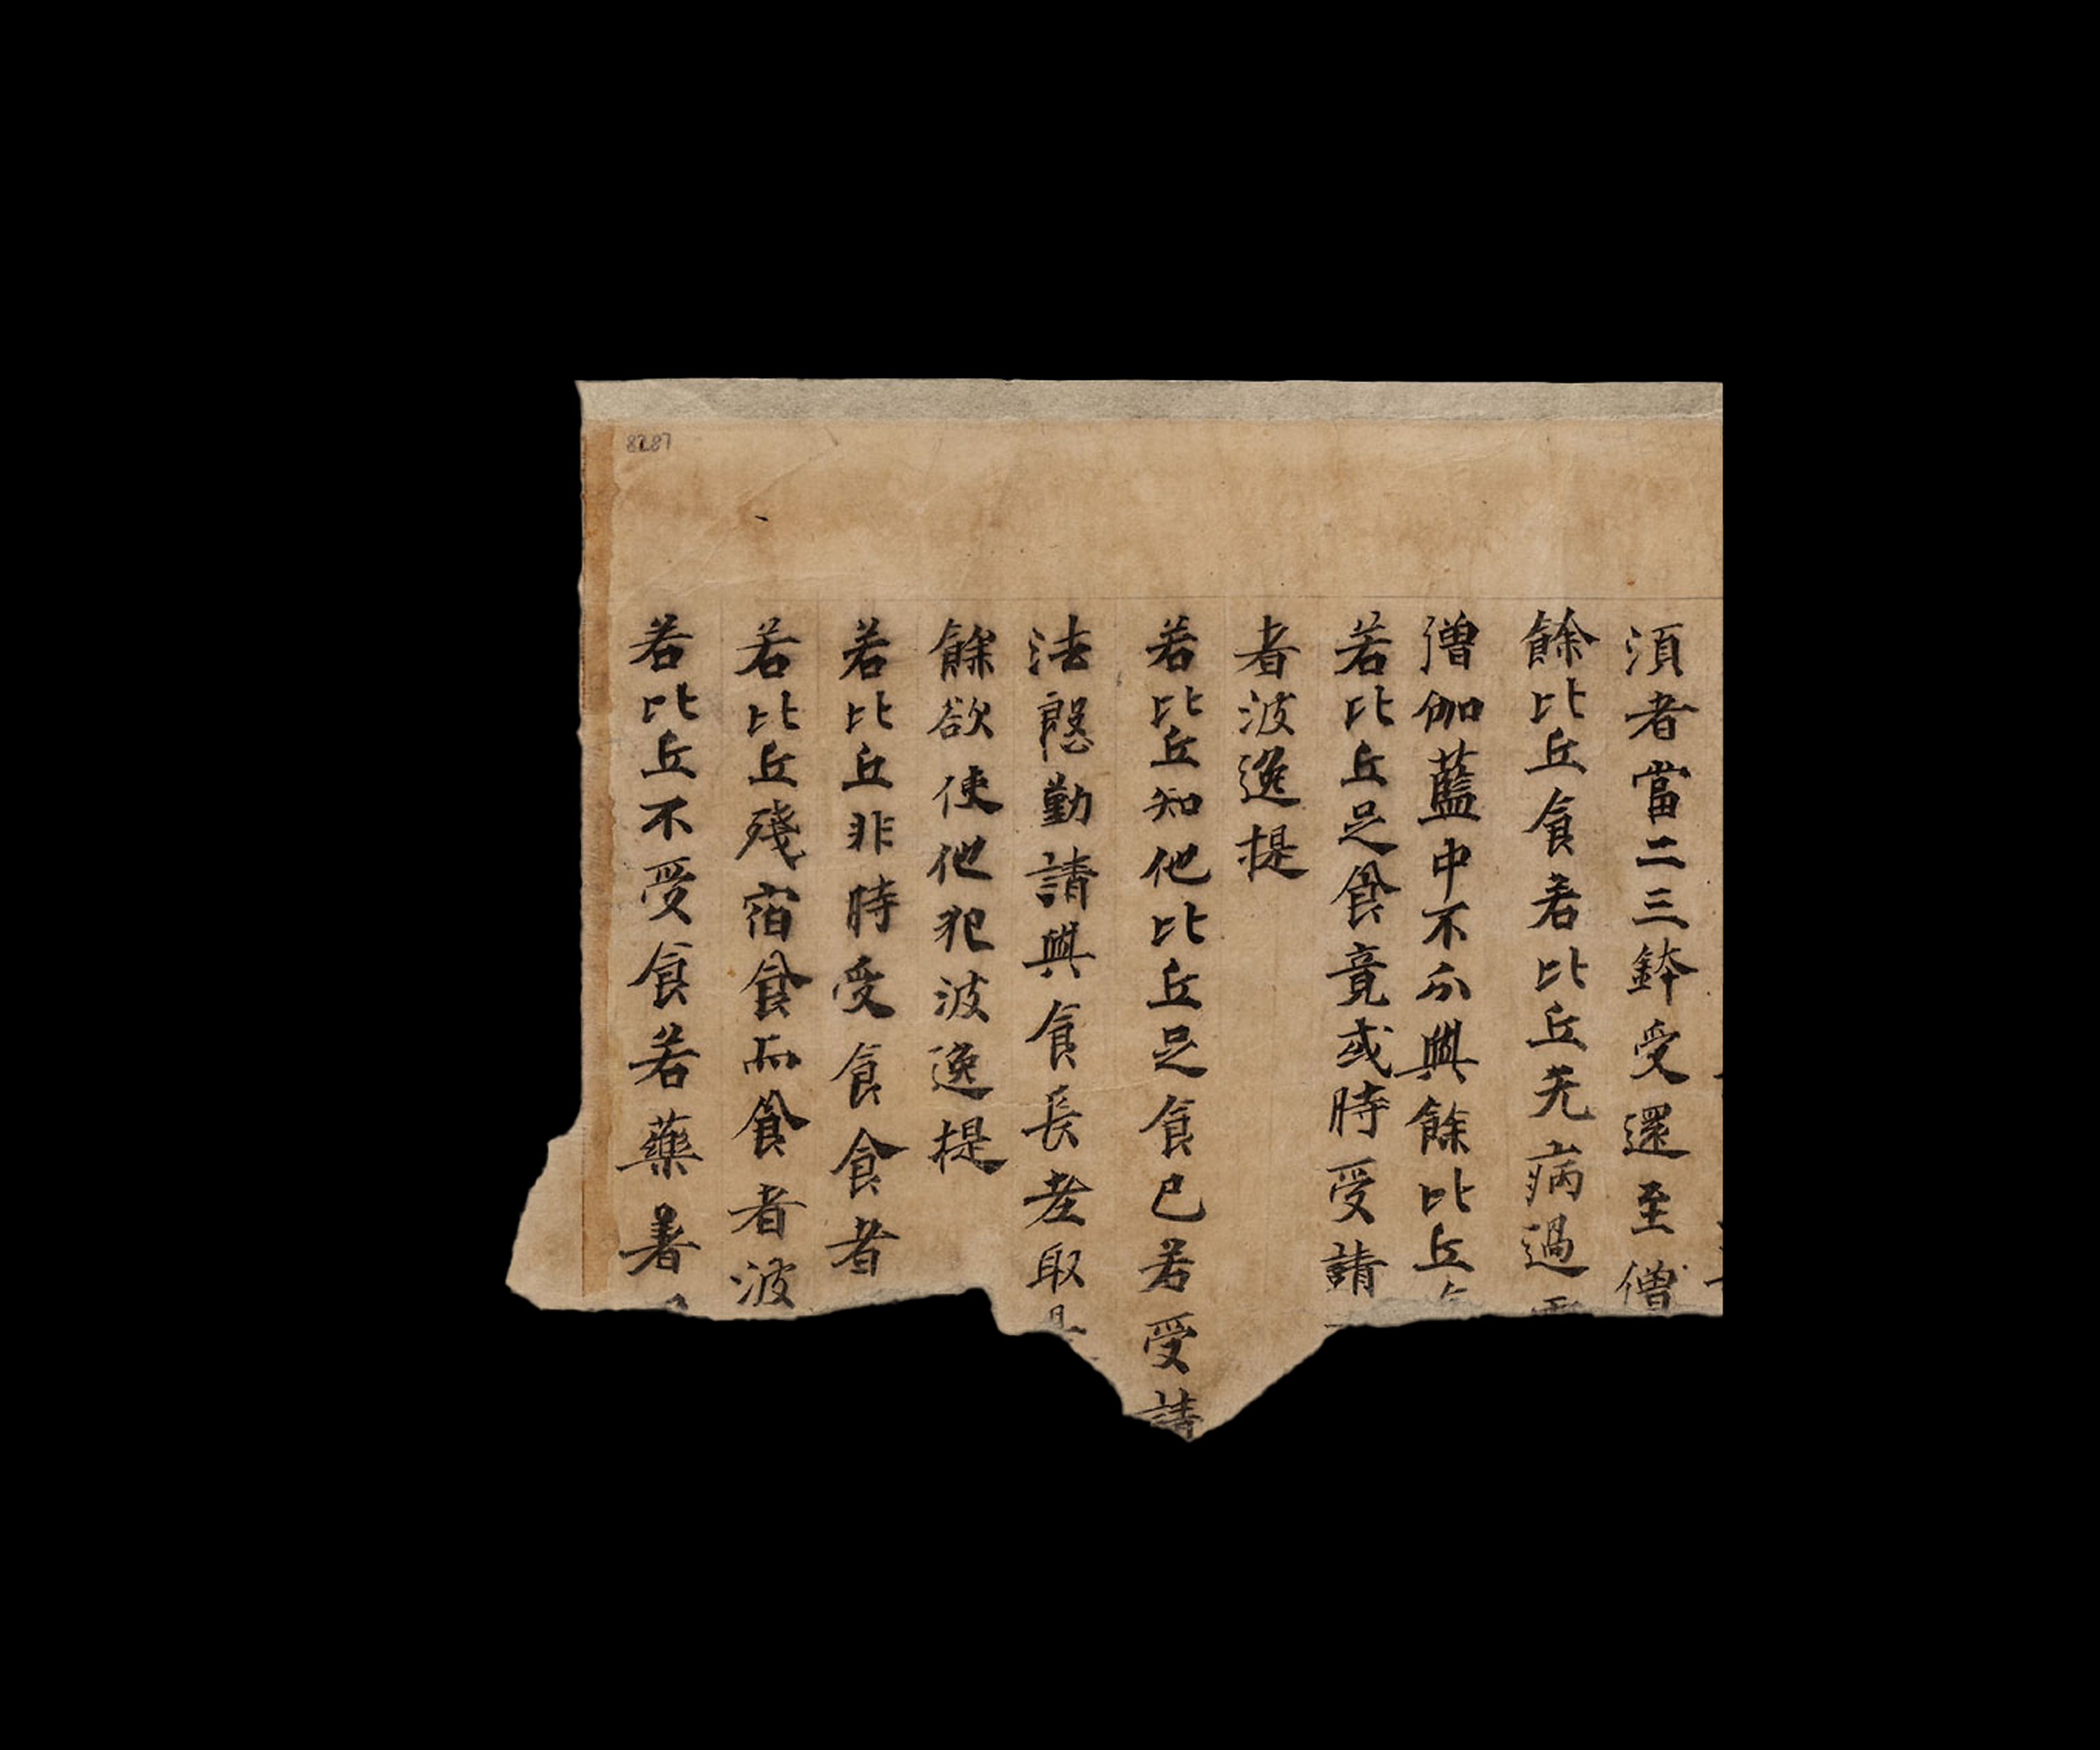 須者當二三鉢受還至僧
餘比丘食若比丘无病過
僧伽藍中不分與餘比丘
若比丘足食竟或時受請
者波逸提
若比丘知他比丘足食已若受請
法慇勤請與食長老取
餘欲使他犯波逸提
若比丘非時受食食者
若比丘殘宿食而食者波
若比丘不受食若藥著
8287